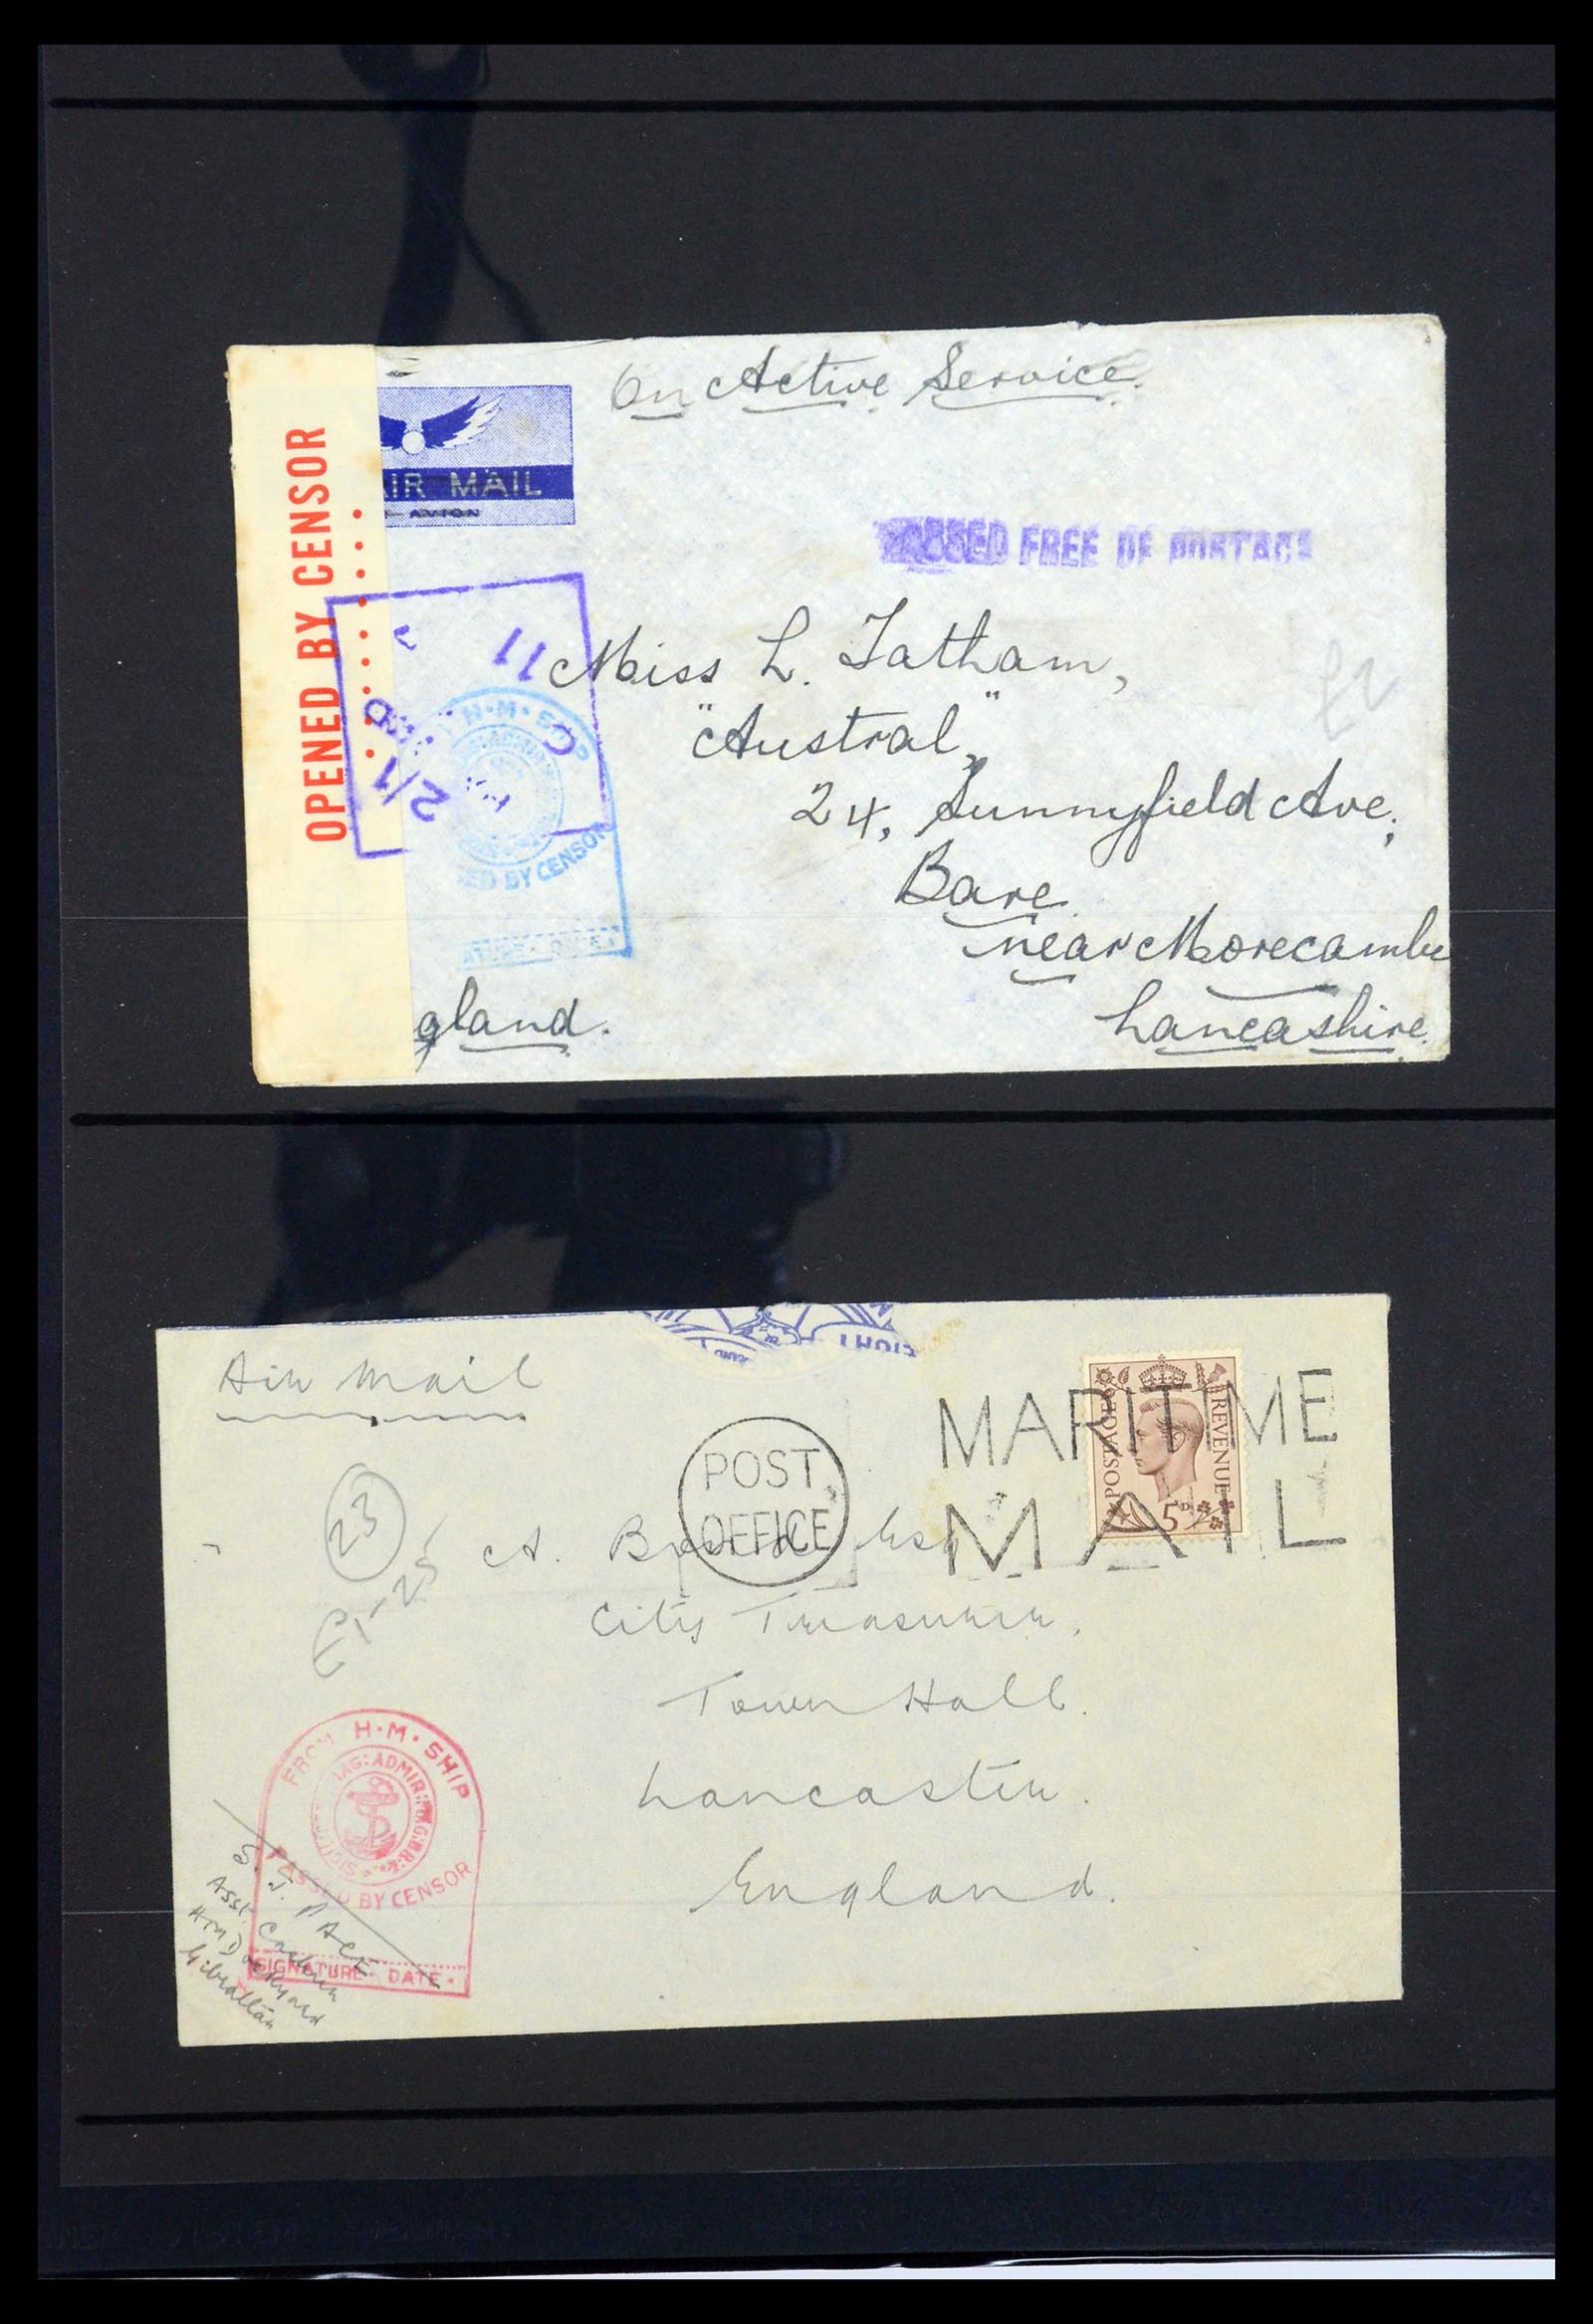 On Active Service.
AIR MAIL
AVION
OPENED BY CENSOR
FREE OF POSTAGE
11
Miss L. Tatham,
"Austral",
24, Sunnyfield Ave,
Bare
near Morecambe
Lancashire.
gland.
£2
2/1
H·M·SHIP
ED BY CENSOR
Air Mail
POST
OFFICE
MARITIME
MAIL
POSTAGE
REVENUE
5D
23
£1-25
A.
Esq
City Treasurer,
Town Hall.
Lancaster.
England.
FROM H·M·SHIP
PASSED BY CENSOR
SIGNATURE· DATE·
S. J. PACE
Asst. Cashier
HM Dockyard
Gibraltar